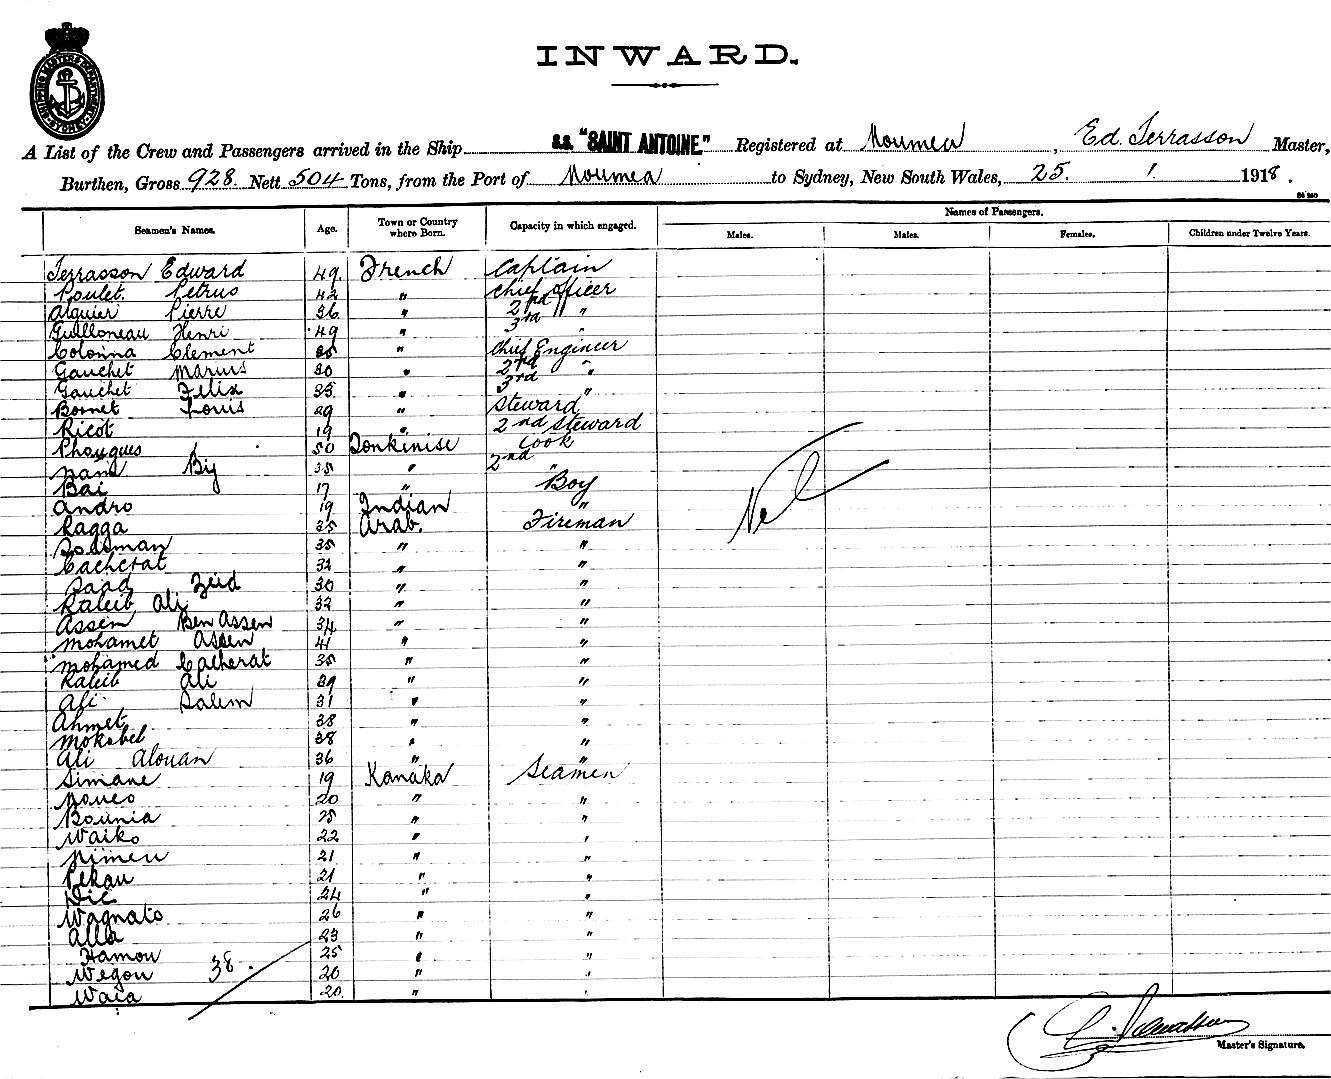 SHIPPING MASTERS DEPARTMENT SYDNEY
INWARD.
A List of the Crew and Passengers arrived in the Ship s.s. "SAINT ANTOINE." Registered at Noumea, Ed. Terrasson Master,
Burthen, Gross 928. Nett 504 Tons, from the Port of Noumea to Sydney, New South Wales, 25. 1. 1918.
Seamen's Names. Age. Town or Country where Born. Capacity in which engaged. Names of Passengers.
Males. Males. Females. Children under Twelve Years.
Terrasson Edward 49. French Captain
Poulet. Petrus 42 " Chief officer
Alquier Pierre 36. " 2nd "
Guilloneau Henri 49 " 3rd "
Colonna Clement " Chief Engineer
Gauchet Marius 30 " 2nd "
Gauchet Felix 35 " 3rd "
Bornet Louis 29 " Steward
Ricot 19 " 2nd Steward
50 Tonkinise Cook
Bij 35 " 2nd "
Bai 17 " Boy
Andro 19 Indian "
Ragga 35 Arab. Fireman
35 " "
Cacherat 32 " "
Saad Zeid 30 " "
Kaleib Ali 32 " "
Assen Ben Assen 34 " "
Mohamet Assen 41 " "
Mohamed Cacherat 35 " "
Kaleib Ali 39 " "
Ali Salem 31 " "
Ahmet 38 " "
Mokobel 38 " "
Ali Alouan 36 " "
Simane 19 Kanaka Seamen
20 " "
Bounia 25 " "
Waiko 22 " "
Nimeu 21 " "
Pekau 21 " "
Dic 24 " "
Wagnato 26 " "
Alla 23 " "
Hamou 25 " "
Wegou 38. 20 " "
Waia 20. " "
Nil
Master's Signature.